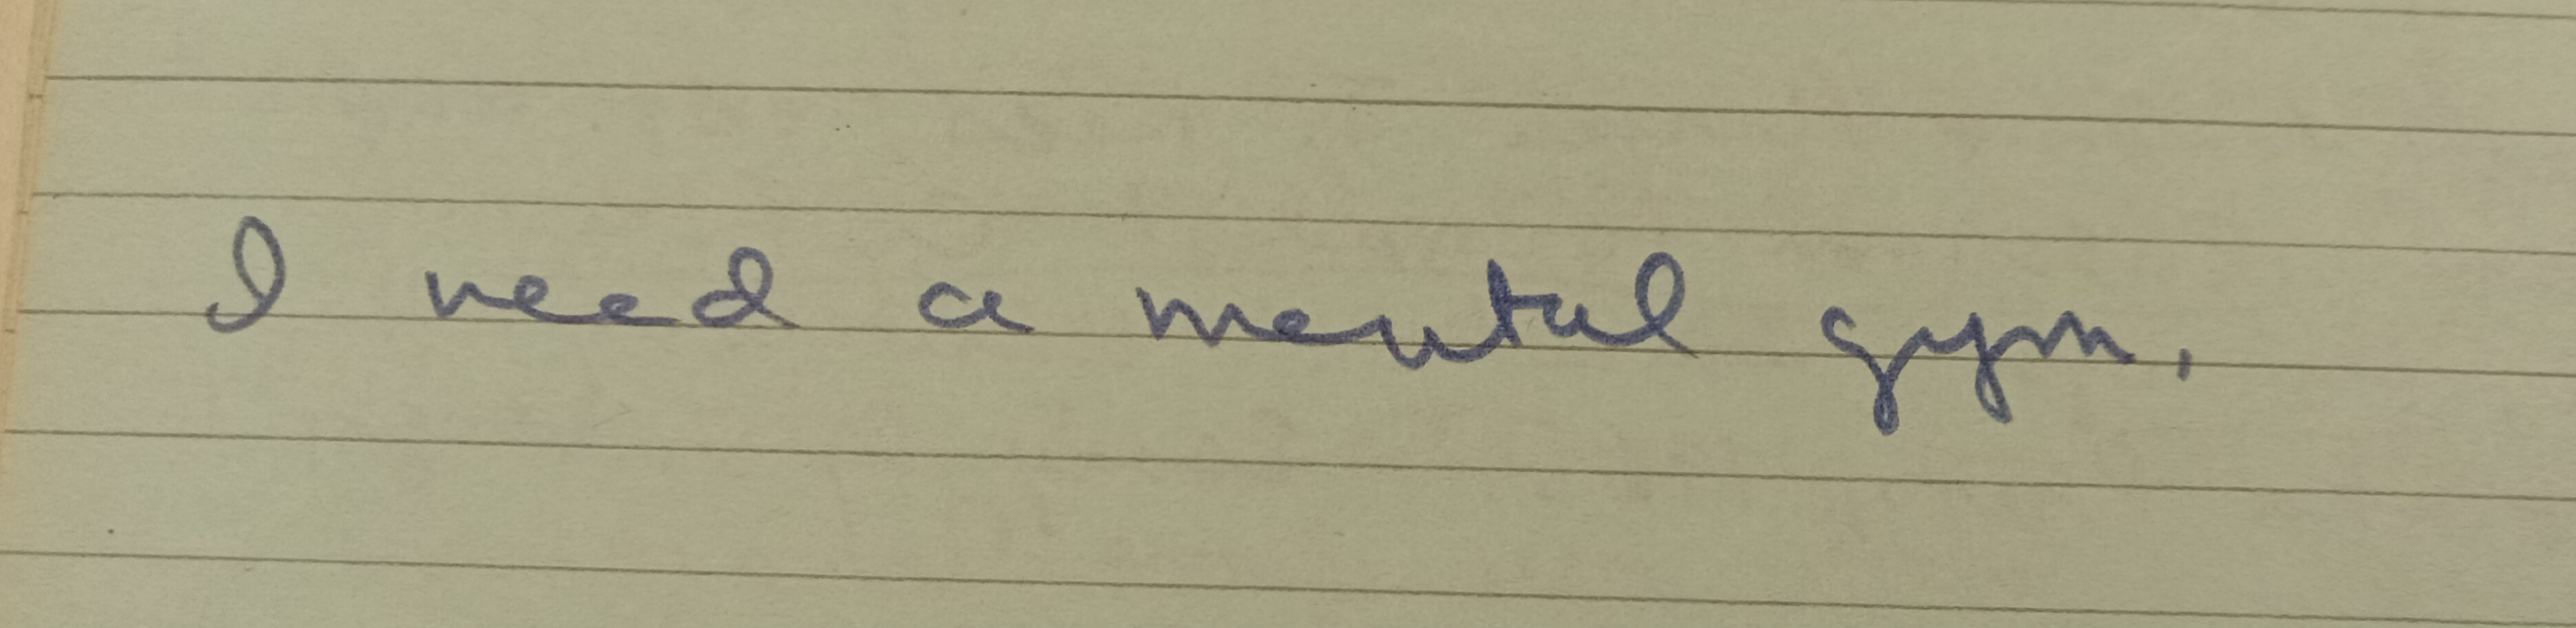 I need a mental gym,